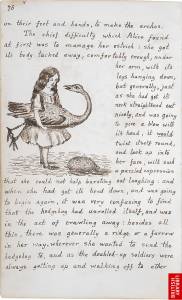 76
on their feet and hands, to make the arches.
The chief difficulty which Alice found
at first was to manage her ostrich: she got
its body tucked away, comfortably enough, under
her arm, with its
legs hanging down,
but generally, just
as she had got its
neck straightened out
nicely, and was going
to give a blow with
its head, it would
twist itself round,
and look up into
her face, with such
a puzzled expression
that she could not help bursting out laughing: and
when she had got its head down, and was going
to begin again, it was very confusing to find
that the hedgehog had unrolled itself, and was
in the act of crawling away: besides all
this, there was generally a ridge or a furrow
in her way, wherever she wanted to send the
hedgehog to, and as the doubled-up soldiers were
always getting up and walking off to other
BRITISH
LIBRARY